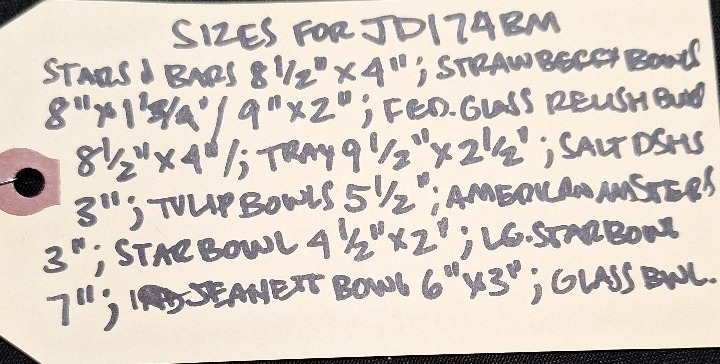 SIZES FOR JD174BM
STARS & BARS 8 1/2" X 4"; STRAWBERRY BOWLS
8" X 1 3/4" / 9" X 2"; FED. GLASS RELISH
8 1/2" X 4" /; TRAY 9 1/2" X 2 1/2"; SALT DSHS
3"; TULIP BOWLS 5 1/2"; AMERICAN
3"; STAR BOWL 4 1/2" X 2"; LG. STAR BOWL
7"; JEANETT BOWL 6" X 3"; GLASS BWL.